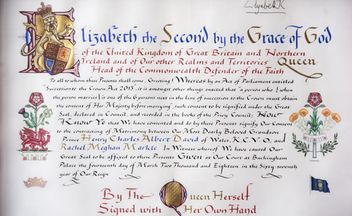 Elizabeth R
Elizabeth the Second by the Grace of God
of the United Kingdom of Great Britain and Northern
Ireland and of Our other Realms and Territories Queen
Head of the Commonwealth Defender of the Faith
To all to whom these Presents shall come, Greeting! Whereas by an Act of Parliament entitled
Succession to the Crown Act 2013 it is amongst other things enacted that "a person who (when
the person marries) is one of the 6 persons next in the line of succession to the Crown must obtain
the consent of Her Majesty before marrying" such consent to be signified under the Great
Seal, declared in Council, and recorded in the books of the Privy Council; Now
Know Ye that We have consented and do by these Presents signify Our Consent
to the contracting of Matrimony between Our Most Dearly Beloved Grandson
Prince Henry Charles Albert David of Wales, K.C.V.O. and
Rachel Meghan Markle. In Witness whereof We have caused Our
Great Seal to be affixed to these Presents Given at Our Court at Buckingham
Palace the fourteenth day of March Two Thousand and Eighteen in the Sixty-seventh
year of Our Reign
By The Queen Herself
Signed with Her Own Hand